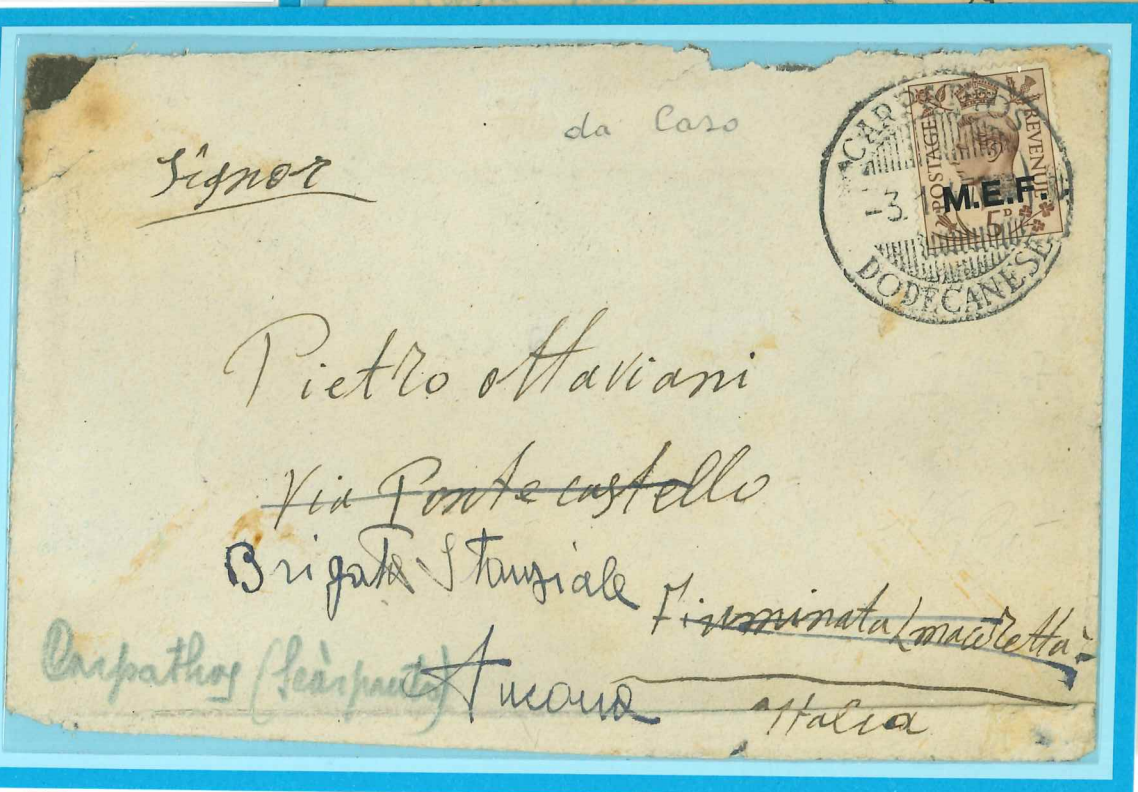 da Caso
Signor
CARPATHOS
-3.1
DODECANESE
POSTAGE
REVENUE
M.E.F.
5D
Pietro Ottaviani
Via Pontecastello
Brigata Stanziale
Fiuminata (Maceretta)
Carpathos (Scàrpanto)
Ancona
Italia